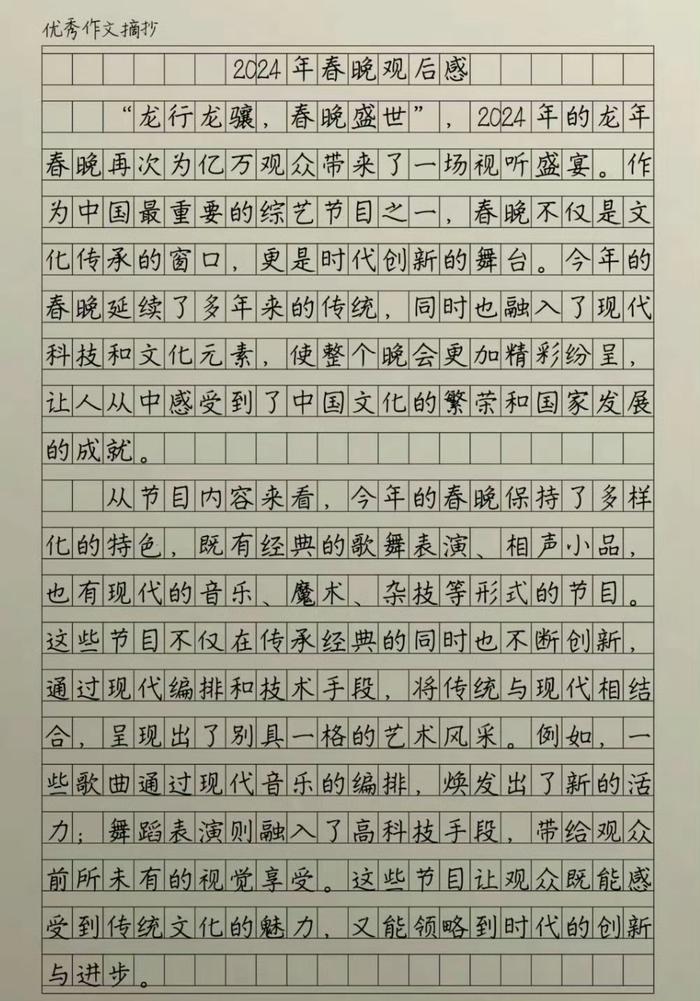 优秀作文摘抄
2024年春晚观后感
“龙行龙骧，春晚盛世”，2024年的龙年
春晚再次为亿万观众带来了一场视听盛宴。作
为中国最重要的综艺节目之一，春晚不仅是文
化传承的窗口，更是时代创新的舞台。今年的
春晚延续了多年来的传统，同时也融入了现代
科技和文化元素，使整个晚会更加精彩纷呈，
让人从中感受到了中国文化的繁荣和国家发展
的成就。
从节目内容来看，今年的春晚保持了多样
化的特色，既有经典的歌舞表演、相声小品，
也有现代的音乐、魔术、杂技等形式的节目。
这些节目不仅在传承经典的同时也不断创新，
通过现代编排和技术手段，将传统与现代相结
合，呈现出了别具一格的艺术风采。例如，一
些歌曲通过现代音乐的编排，焕发出了新的活
力；舞蹈表演则融入了高科技手段，带给观众
前所未有的视觉享受。这些节目让观众既能感
受到传统文化的魅力，又能领略到时代的创新
与进步。